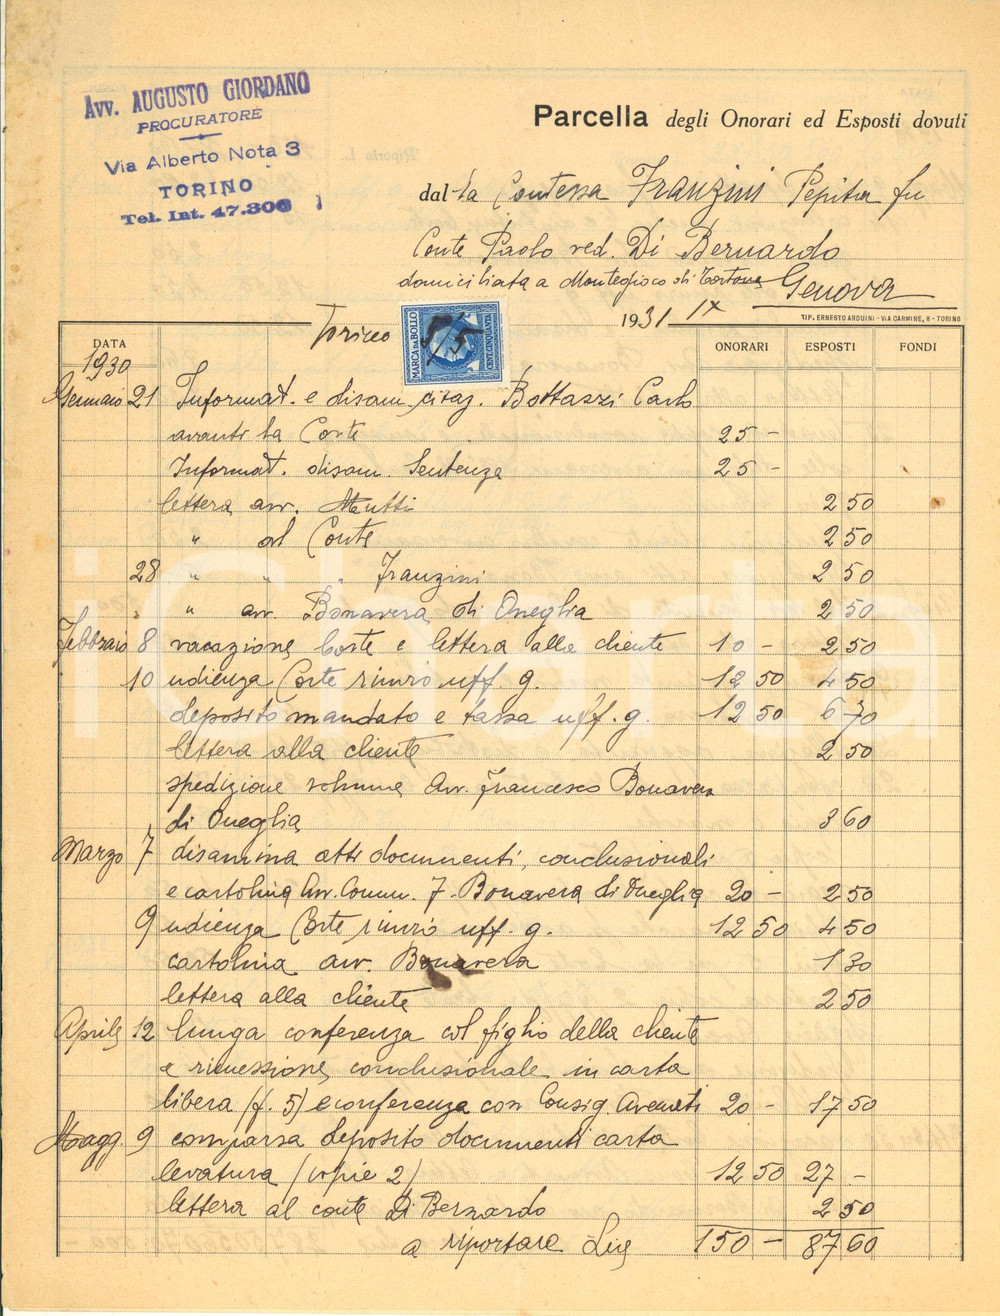 Avv. AUGUSTO GIORDANO
PROCURATORE
Via Alberto Nota 3
TORINO
Tel. Int. 47.306
Parcella degli Onorari ed Esposti dovuti
dalla Contessa Franzini Pepita fu
Conte Paolo ved. Di Bernardo
domiciliata a Montegioco di Tortona Genova
TIP. ERNESTO ARDUINI - VIA CARMINE, 8 - TORINO
Torino 1931 IX
MARCA DA BOLLO
CENT. CINQUANTA
DATA ONORARI ESPOSTI FONDI
1930
Gennaio 21 Informat. e disam. citaz. Bottazzi Carlo
avanti la Corte 25 -
Informat. disam. Sentenza 25 -
lettera avv. 2 50
" al Conte 2 50
28 " " " Franzini 2 50
" " avv. Bonavera di Oneglia 2 50
Febbraio 8 vacazione Corte e lettera alla cliente 10 - 2 50
10 udienza Corte rinvio uff. g. 12 50 4 50
deposito mandato e tassa uff. g. 12 50 6 70
lettera alla cliente 2 50
spedizione volume Avv. Francesco Bonavera
di Oneglia 3 60
Marzo 7 disamina atti documenti, conclusionali
e cartolina Avv. Comm. F. Bonavera di Oneglia 20 - 2 50
9 udienza Corte rinvio uff. g. 12 50 4 50
cartolina avv. Bonavera 1 30
lettera alla cliente 2 50
Aprile 12 lunga conferenza col figlio della cliente
e rimessione conclusionale in carta
libera (f. 5) e conferenza con Consig. 20 - 17 50
Magg. 9 comparsa deposito documenti carta
levatura (copie 2) 12 50 27 -
lettera al conte Di Bernardo 2 50
a riportare Lire 150 - 87 60
iCharta